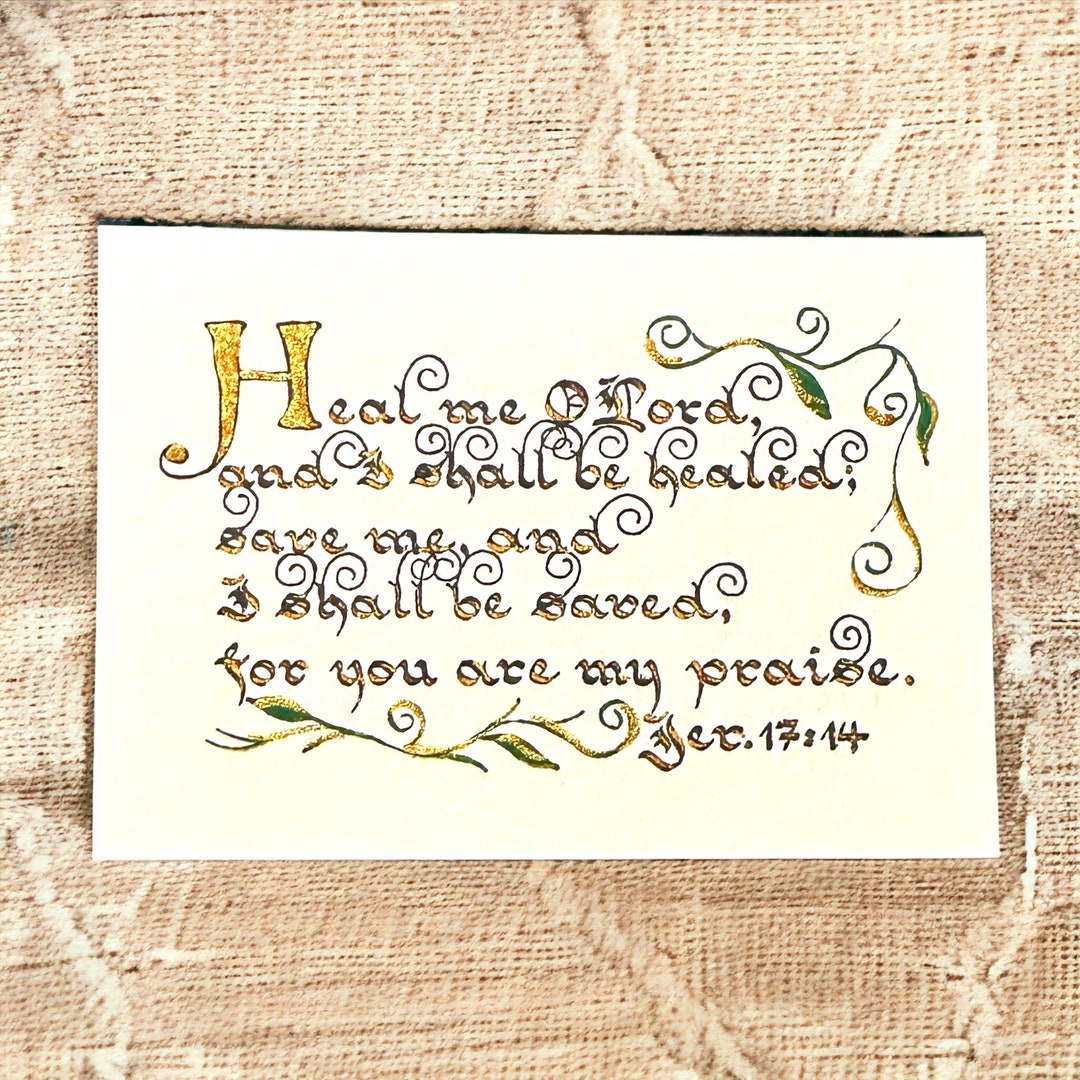 Heal me O Lord,
and I shall be healed;
save me, and
I shall be saved,
for you are my praise.
Jer. 17:14